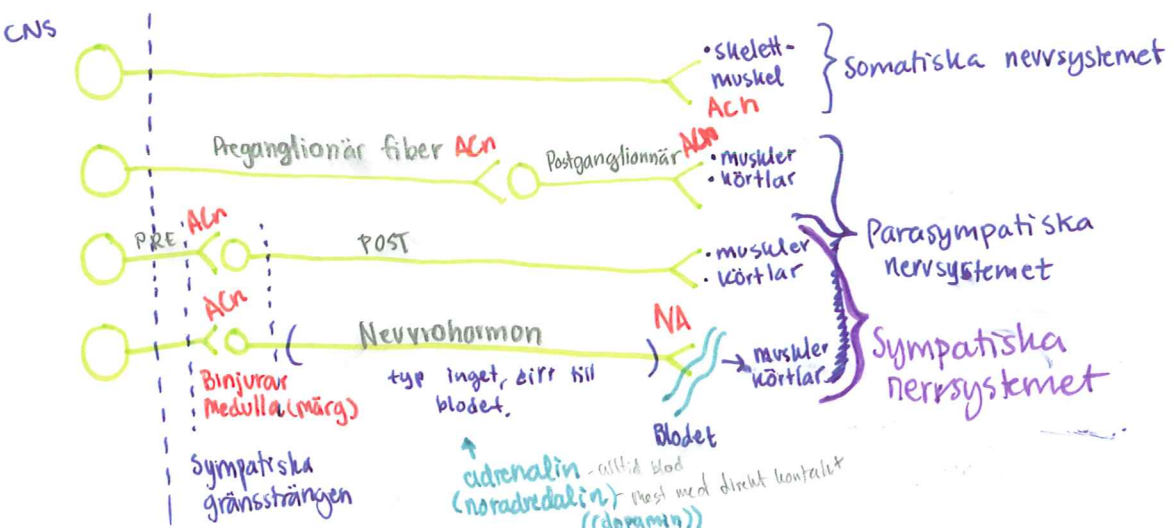 CNS
• skelett-
muskel
Ach
Somatiska nervsystemet
Preganglionär fiber
ACh
Postganglionnär
ACh
• muskler
• körtlar
Parasympatiska
nervsystemet
PRE
ACh
POST
• muskler
• körtlar
Sympatiska
nervsystemet
ACh
(Neurohormon)
NA
muskler
körtlar
Binjurar
Medulla (märg)
typ inget, dirr till
blodet.
Blodet
Sympatiska
gränssträngen
adrenalin - alltid blod
(noradredalin) - mest med direkt kontakt
((dopamin))